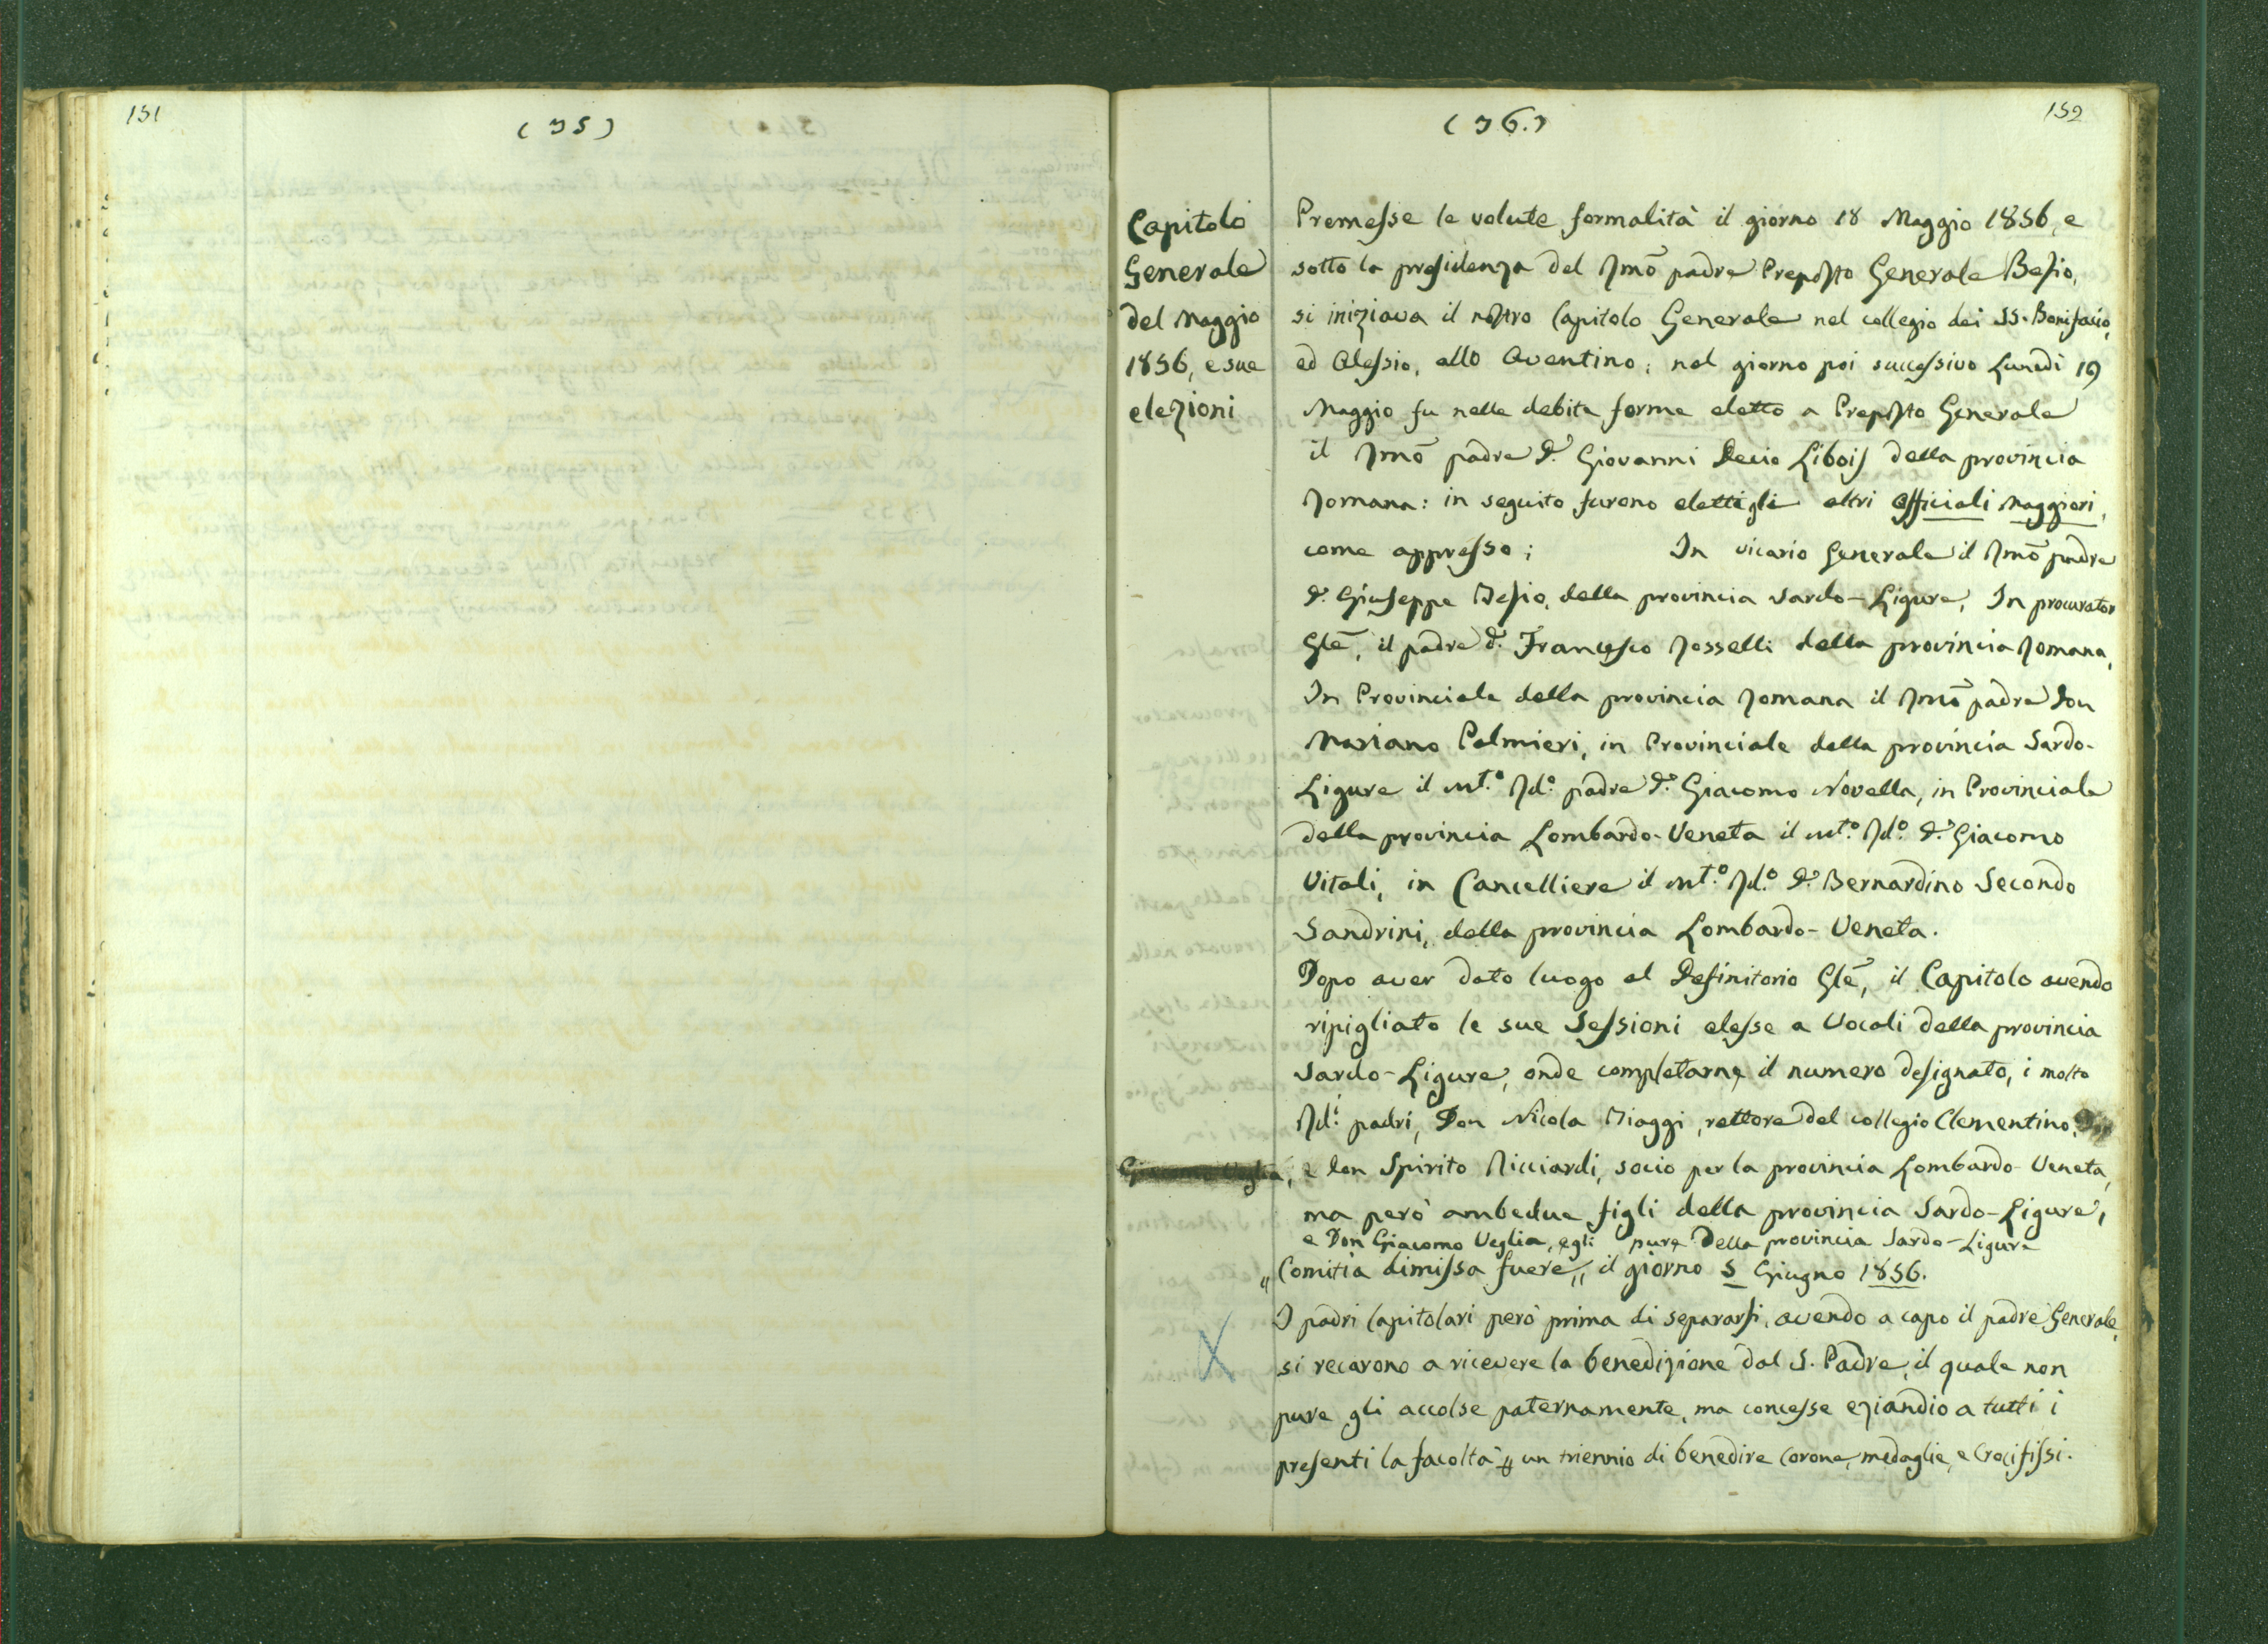 151
(35)
152
(36.)
Capitolo
Generale
del Maggio
1856, e sue
elezioni
Premesse le volute formalità il giorno 18 Maggio 1856, e
sotto la presidenza del Rmō padre Preposto Generale Besio,
si iniziava il nostro Capitolo Generale nel collegio dei SS. Bonifacio,
ed Alessio, allo Aventino; nel giorno poi successivo Lunedì 19
Maggio fu nelle debite forme eletto a Preposto Generale
il Rmō padre D. Giovanni Decio Libois della provincia
Romana: in seguito furono eletti gli altri officiali maggiori,
come appresso; In vicario Generale il Rmō padre
D. Giuseppe Besio, della provincia Sardo-Ligure, In procurator
Glē, il padre D. Francesco Rosselli della provincia Romana,
In Provinciale della provincia Romana il Rmō padre Don
Mariano Palmieri, in Provinciale della provincia Sardo-
Ligure il Mt.º Rd.º padre D. Giacomo Novella, in Provinciale
della provincia Lombardo-Veneta il Mt.º Rd.º D. Giacomo
Vitali, in Cancelliere il Mt.º Rd.º D. Bernardino Secondo
Sandrini, della provincia Lombardo-Veneta.
Dopo aver dato luogo al Definitorio Glē, il Capitolo avendo
ripigliato le sue Sessioni elesse a Vocali della provincia
Sardo-Ligure, onde completarne il numero designato, i molto
Rd.i padri, Don Nicola Biaggi, rettore del collegio Clementino,
e Don Spirito Ricciardi, socio per la provincia Lombardo-Veneta,
ma però ambedue figli della provincia Sardo-Ligure,
e Don Giacomo Veglia, egli pure della provincia Sardo-Ligure
"Comitia dimissa fuere" il giorno 5 Giugno 1856.
I padri Capitolari però prima di separarsi, avendo a capo il padre Generale,
si recarono a ricevere la benedizione dal S. Padre, il quale non
pure gli accolse paternamente, ma concesse eziandio a tutti i
presenti la facoltà un triennio di benedire Corone, medaglie, e Crocifissi.